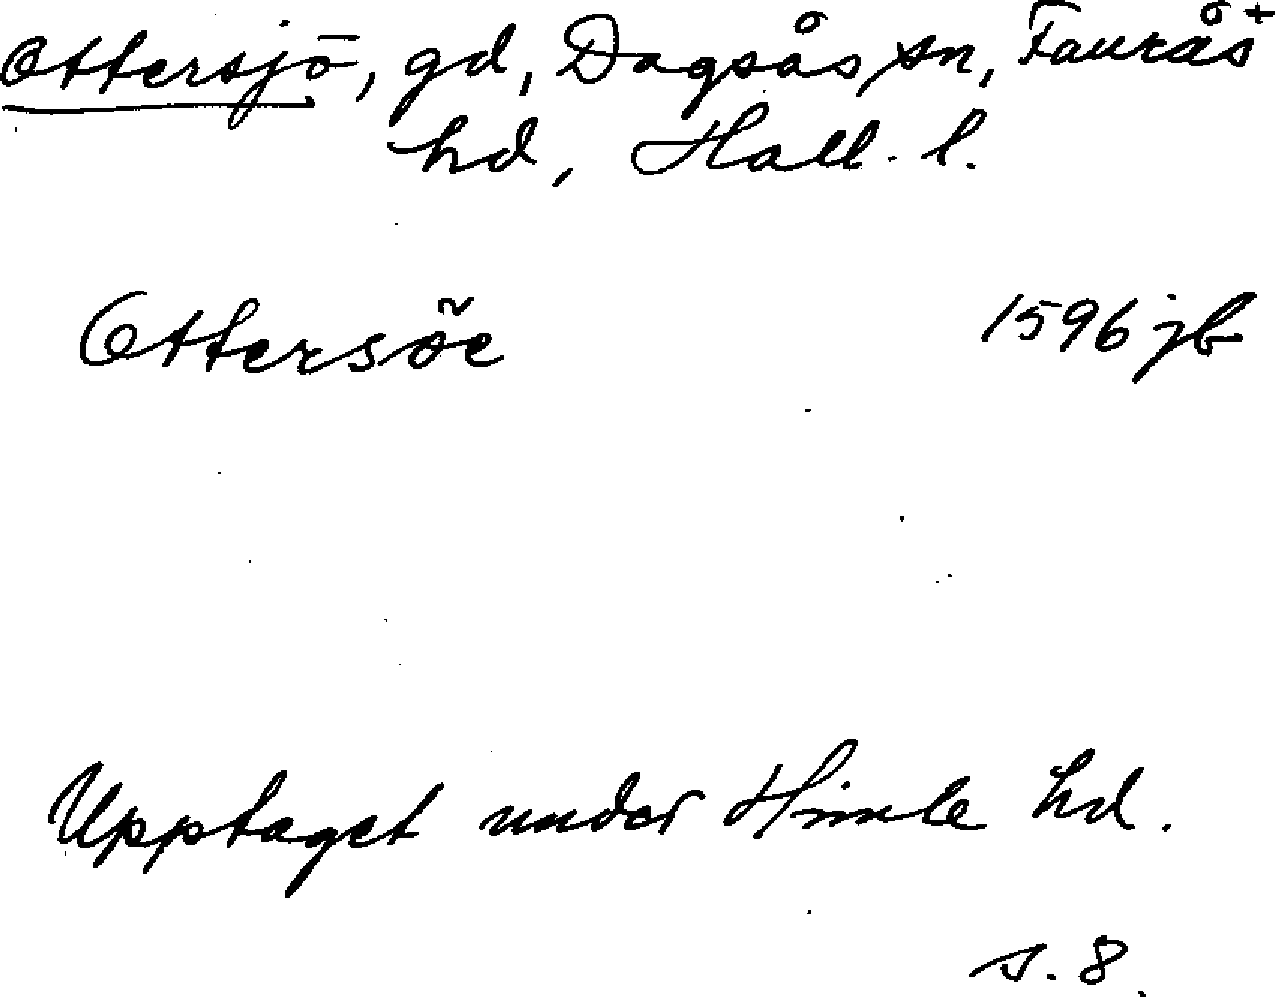 Ottersjö, gd, Dagsås sn, Faurås +
hd, Hall. l.
Ottersöe 1596 jb
Upptaget under Himle hd.
s. 8.